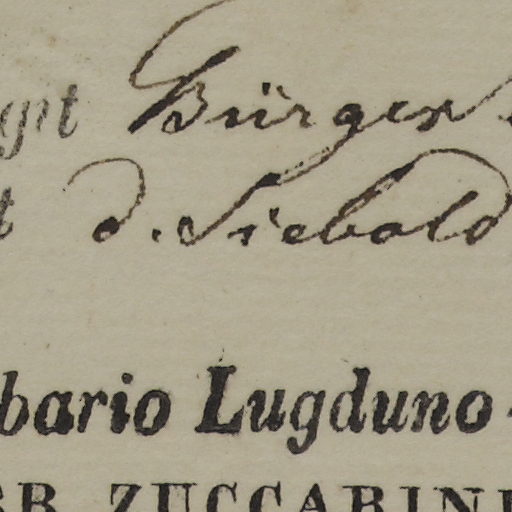 git Bürger
t d. Siebold
bario Lugduno-
RB. ZUCCARINI